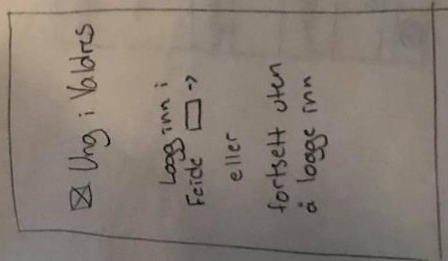 ☒ Ung i Valdres
Logg inn i
Feide □ ->
eller
fortsett uten
å logge inn